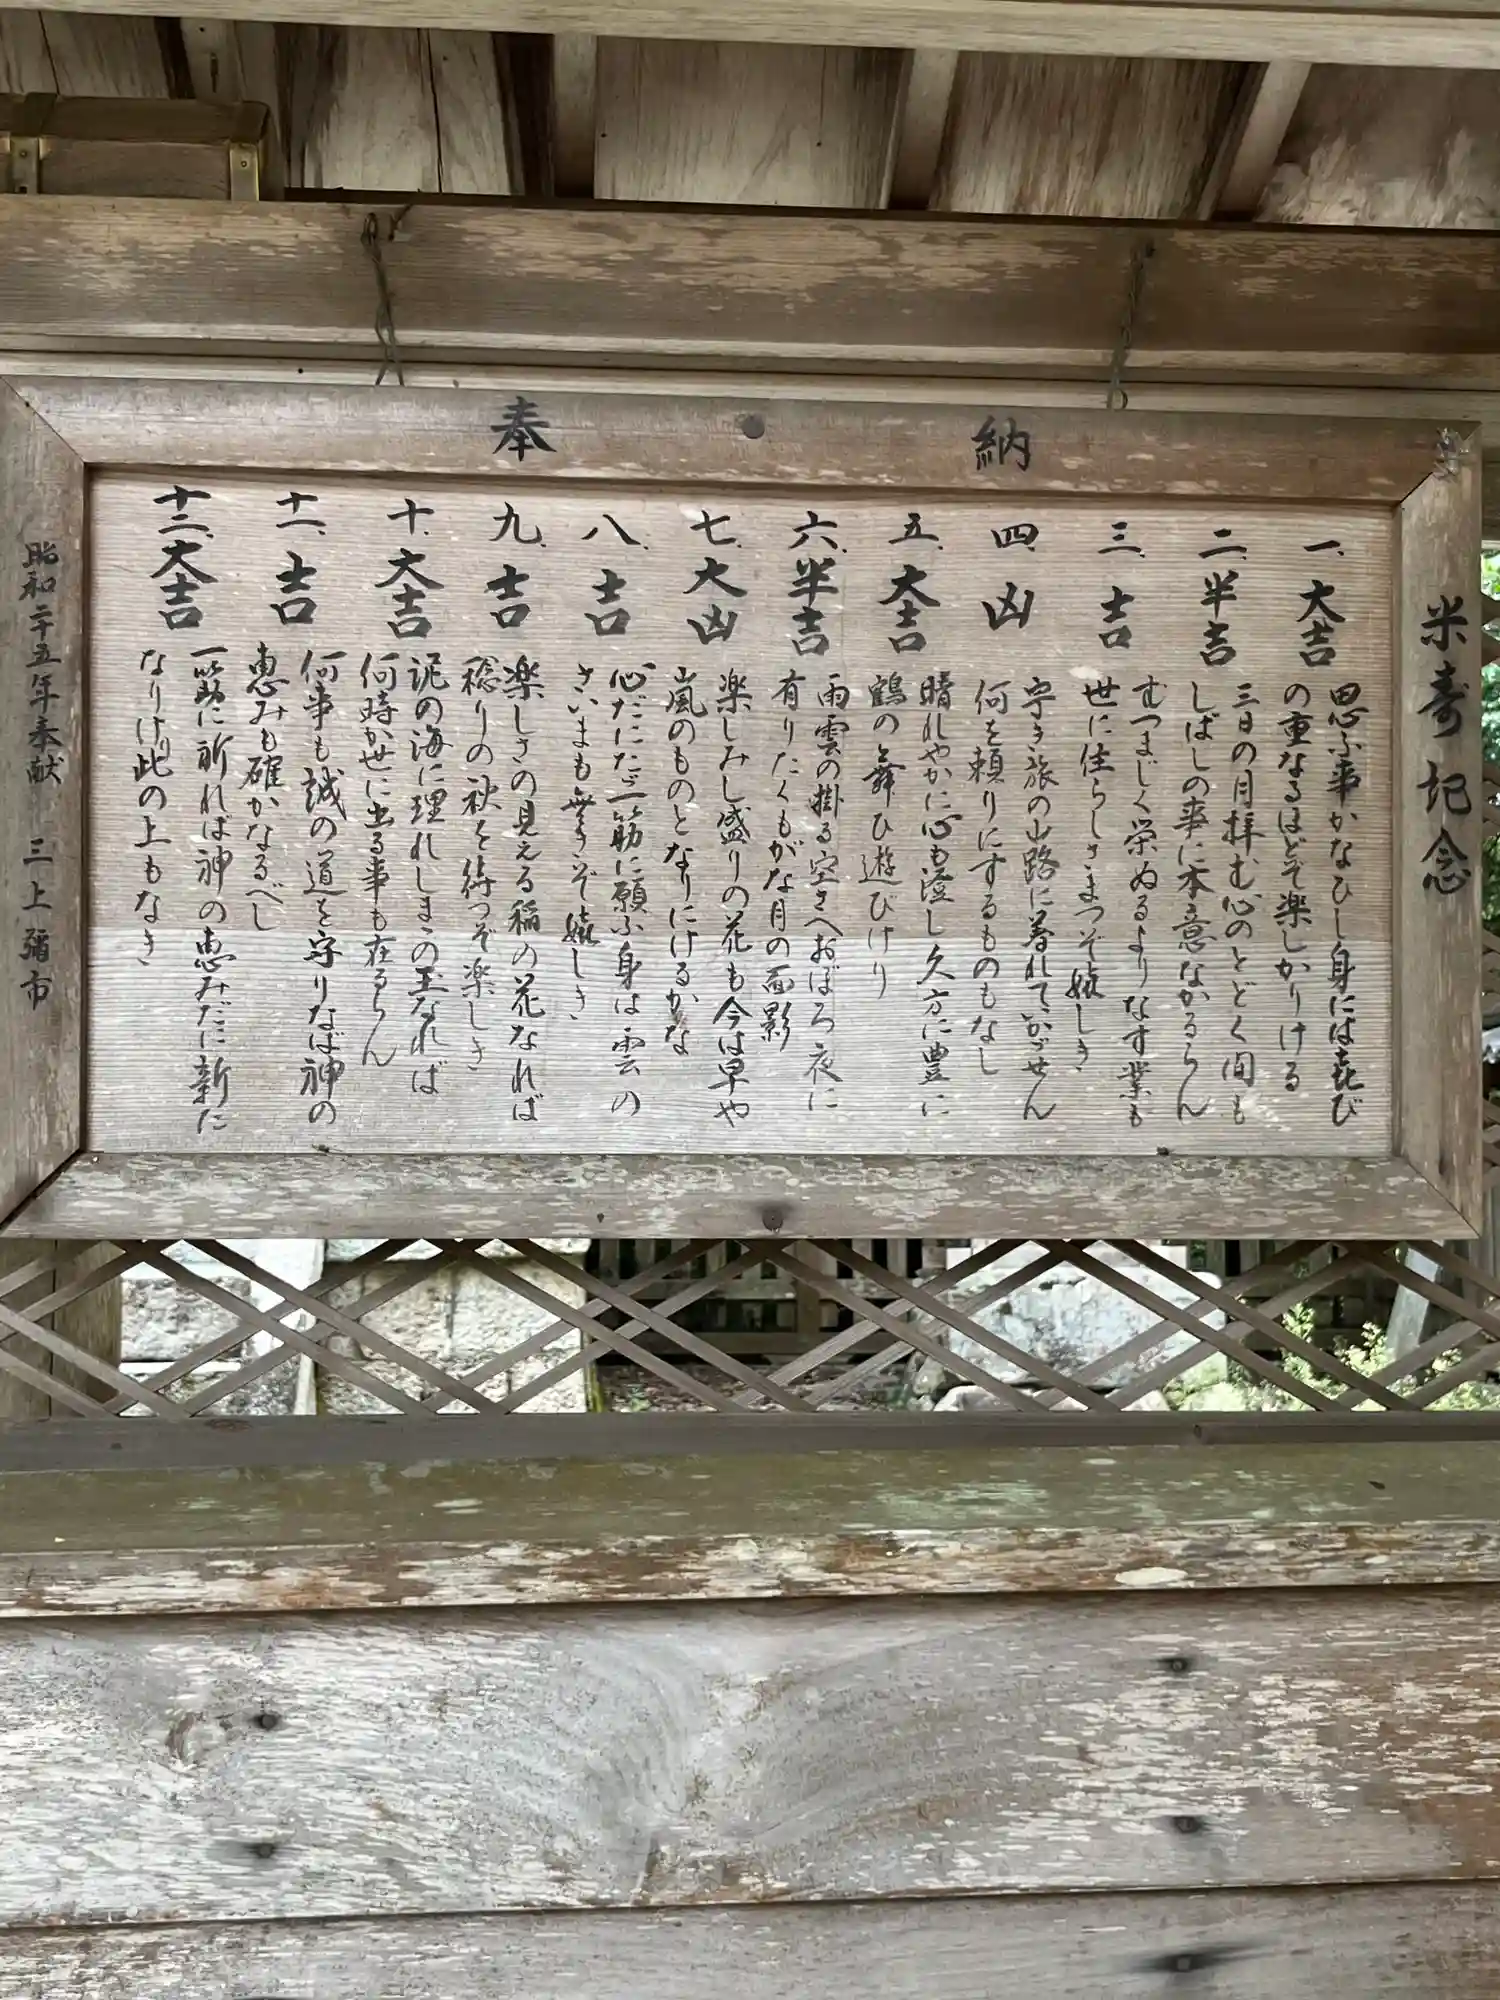 奉納
米寿記念
一、大吉
思ふ事かなひし身には喜び
の重なるほどぞ楽しかりける
二、半吉
三日の月拝む心のとどく間も
しばしの事に本意なかるらん
三、吉
むつまじく栄ゐるよりなす業も
世に住らしさまつぞ嬉しき
四、凶
宇き旅の山路に暮れていかゞせん
何を頼りにするものもなし
五、大吉
晴れやかに心も澄し久方に豊に
鶴の舞ひ遊びけり
六、半吉
雨雲の掛る空さへおぼろ夜に
有りたくもがな月の面影
七、大凶
楽しみし盛りの花も今は早や
嵐のものとなりにけるかな
八、吉
心だにただ一筋に願ふ身は雲の
さいまも無きぞ嬉しき
九、吉
楽しさの見える稲の花なれば
稔りの秋を待つぞ楽しき
十、大吉
泥の海に埋れしまゝの玉なれば
何時か世に出る事も在るらん
十一、吉
何事も誠の道を守りなば神の
恵みも確かなるべし
十二、大吉
一筋に祈れば神の恵みだに新に
なりけり此の上もなき
昭和二十五年奉献 三上彌市